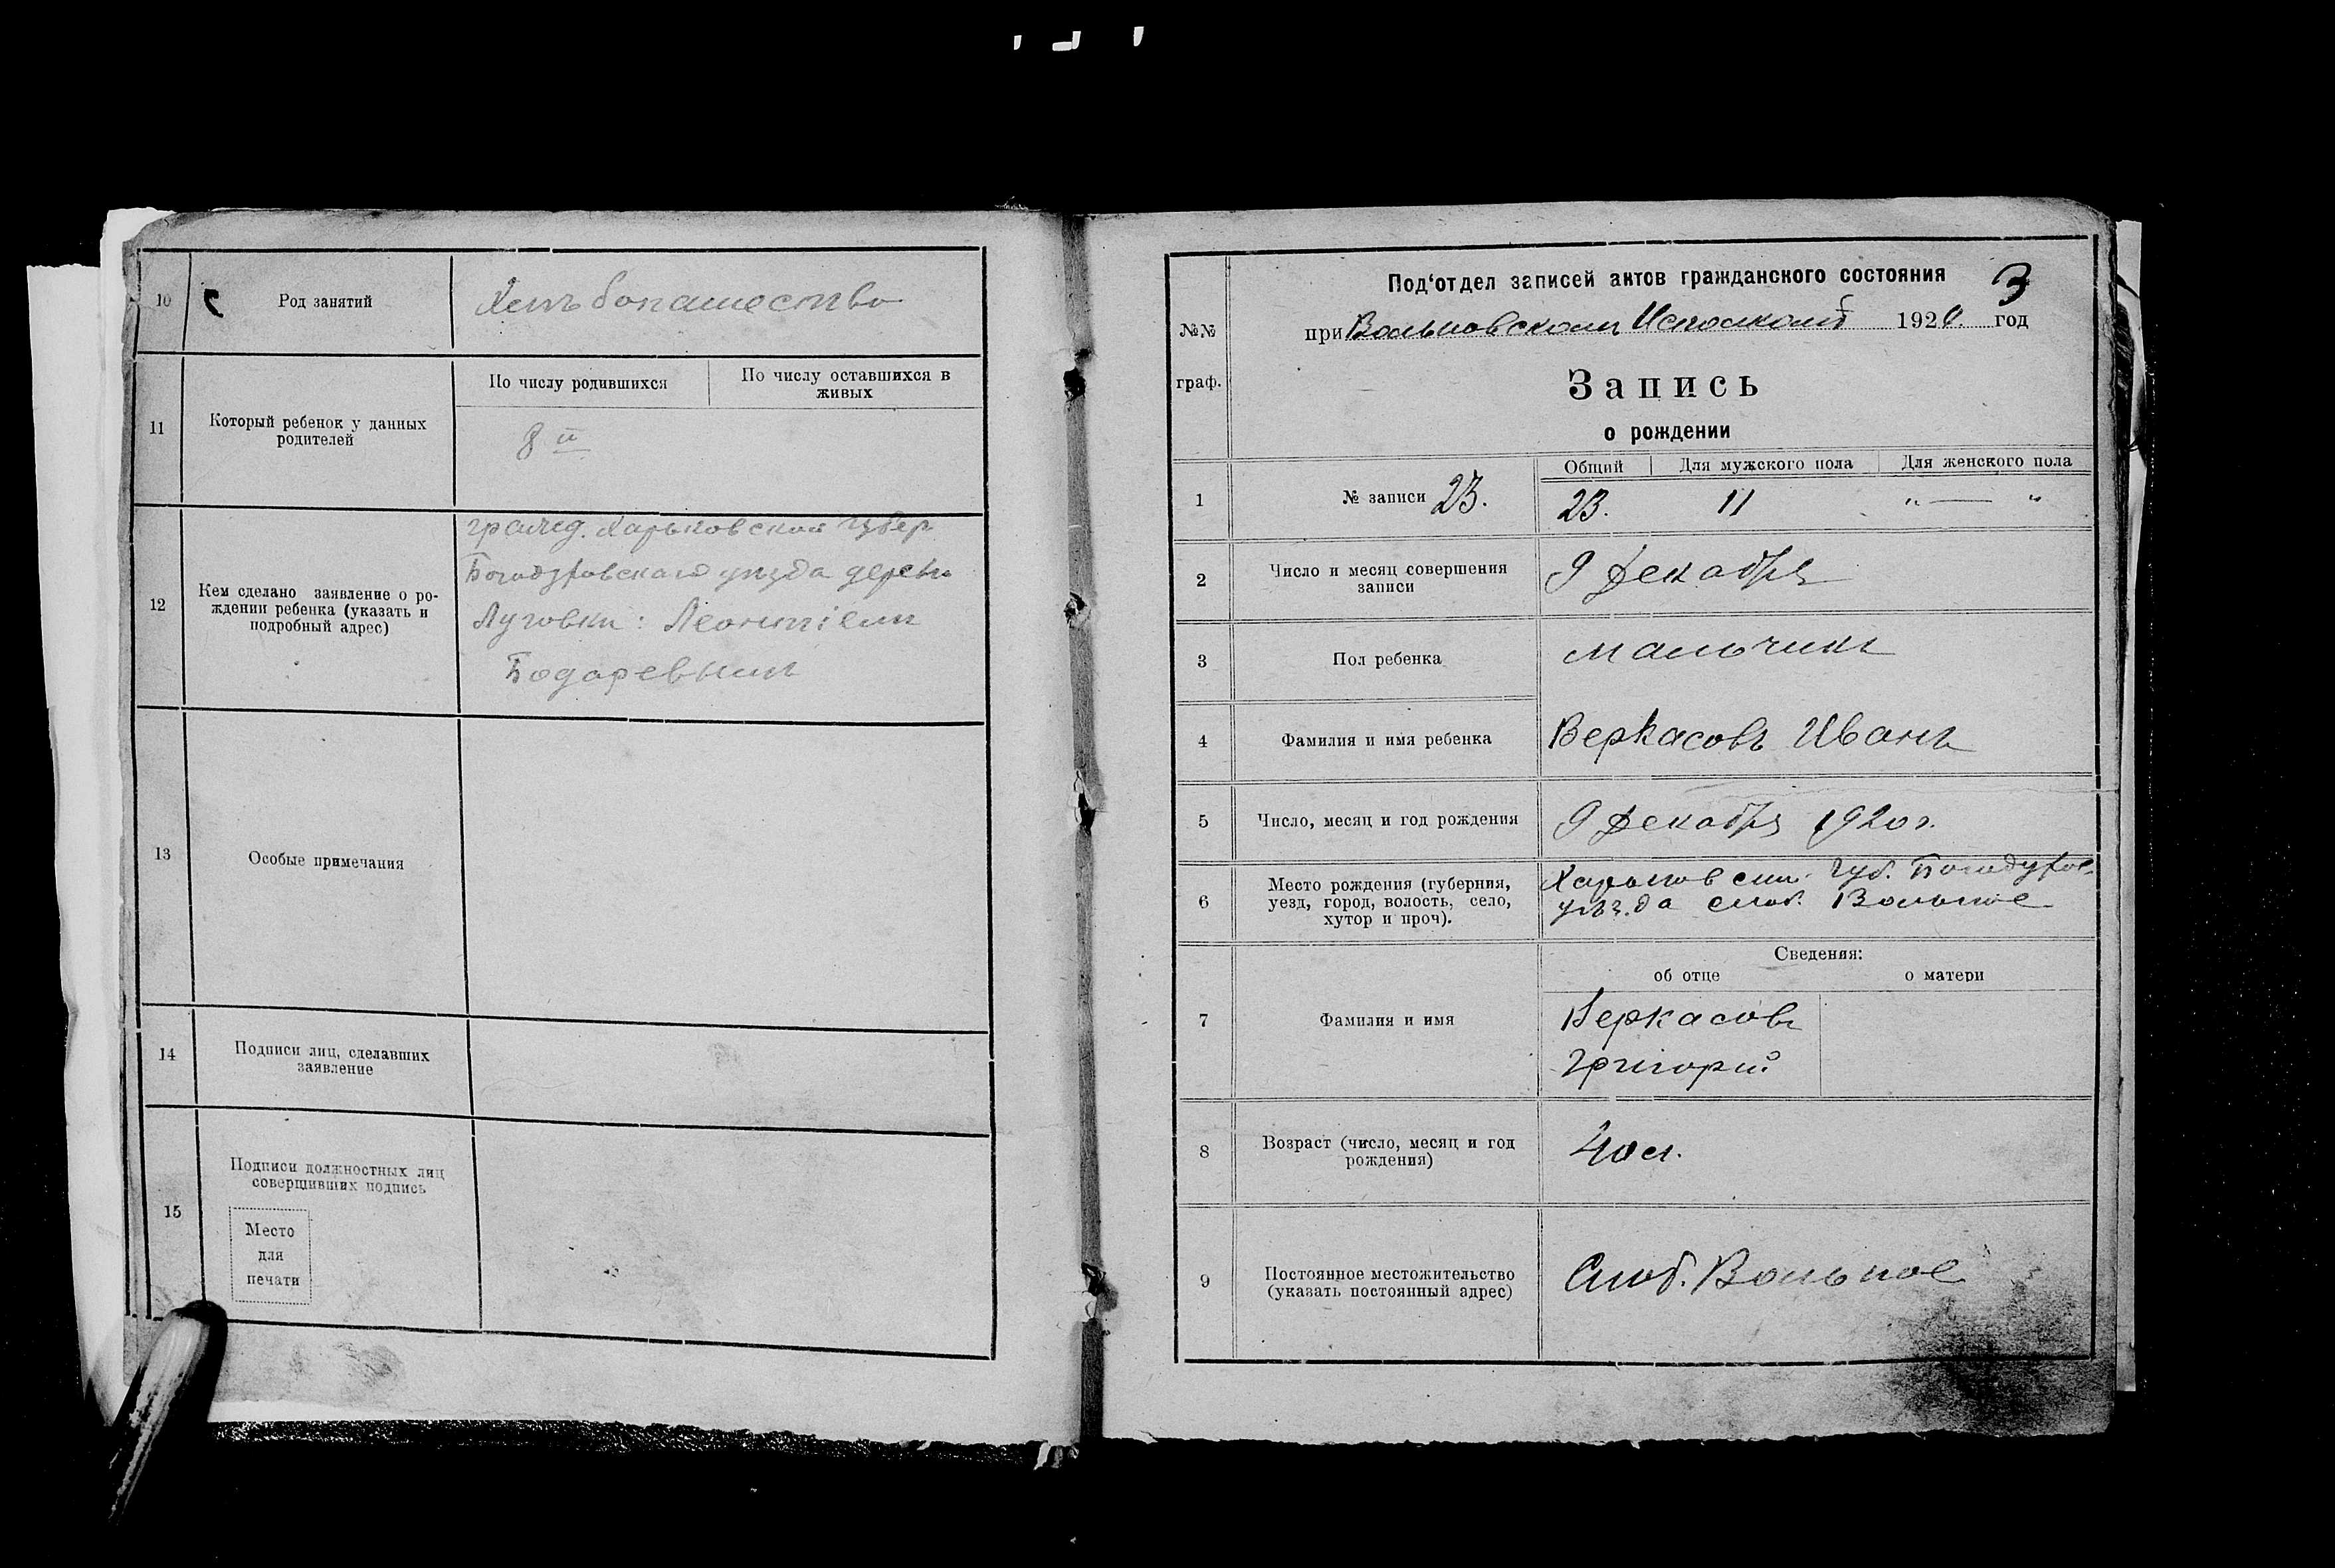 10
Род занятий
Хлѣбопашество
11
Который ребенок у данных
родителей
По числу родившихся
По числу оставшихся в
живых
8й
12
Кем сделано заявление о ро-
ждении ребенка (указать и
подробный адрес)
гражд. Харьковской Губер
Богодуховскаго уѣзда дерев.
Луговки: Леонтіем
13
Особые примечания
14
Подписи лиц, сделавших
заявление
15
Подписи должностных лиц
совершивших подпись
Место
для
печати
3
№№
граф.
Под'отдел записей актов гражданского состояния
при Вольновском Исполкомѣ 192 год
Запись
о рождении
1
№ записи 23.
Общий
Для мужского пола
Для женского пола
23. 11 „ — “
2
Число и месяц совершения
записи
9 Декабря
3
Пол ребенка
мальчикъ
4
Фамилия и имя ребенка
Веркасовъ Иванъ
5
Число, месяц и год рождения
9 Декабря 1920 г.
6
Место рождения (губерния,
уезд, город, волость, село,
хутор и проч).
Харьковск. Губ. Богодухов.
уѣзда слоб. Вольное
Сведения:
об отце
о матери
7
Фамилия и имя
Веркасовъ
Григорий
8
Возраст (число, месяц и год
рождения)
40 л.
9
Постоянное местожительство
(указать постоянный адрес)
Слоб. Вольное